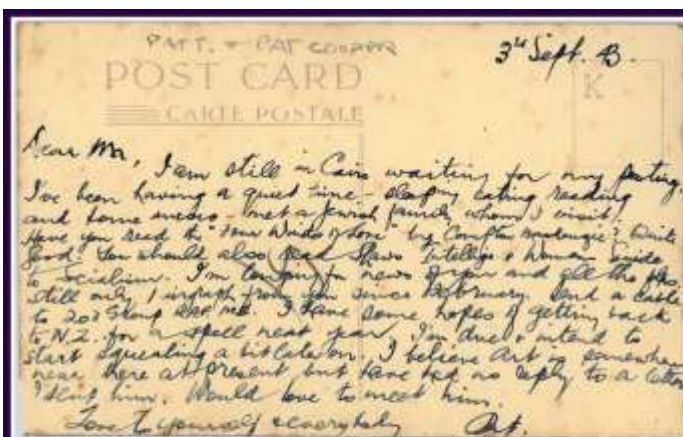 PATT. + PAT COOPER
3rd Sept. 43.
POST CARD
K
CARTE POSTALE
Dear Mn, I am still in Cairo waiting for my posting.
I've been having a quiet time - sleeping eating reading
and some - met a Jewish family whom I visit.
Have you read the "Four Winds of Love" by Compton Mackenzie? Quite
good. You should also read Shaws Intellig. Woman Guide
to Socialism. I'm for news of you and all the
still only 1 airgraph from you since February. Send a cable
to 203 Group RAF ME. I have some hopes of getting back
to N.Z. for a spell next year. I'm due & intend to
start squealing a bit later on. I believe Art is somewhere
near here at present but have had no reply to a letter
I sent him. Would love to meet him.
Love to yourself & everybody
Pat.